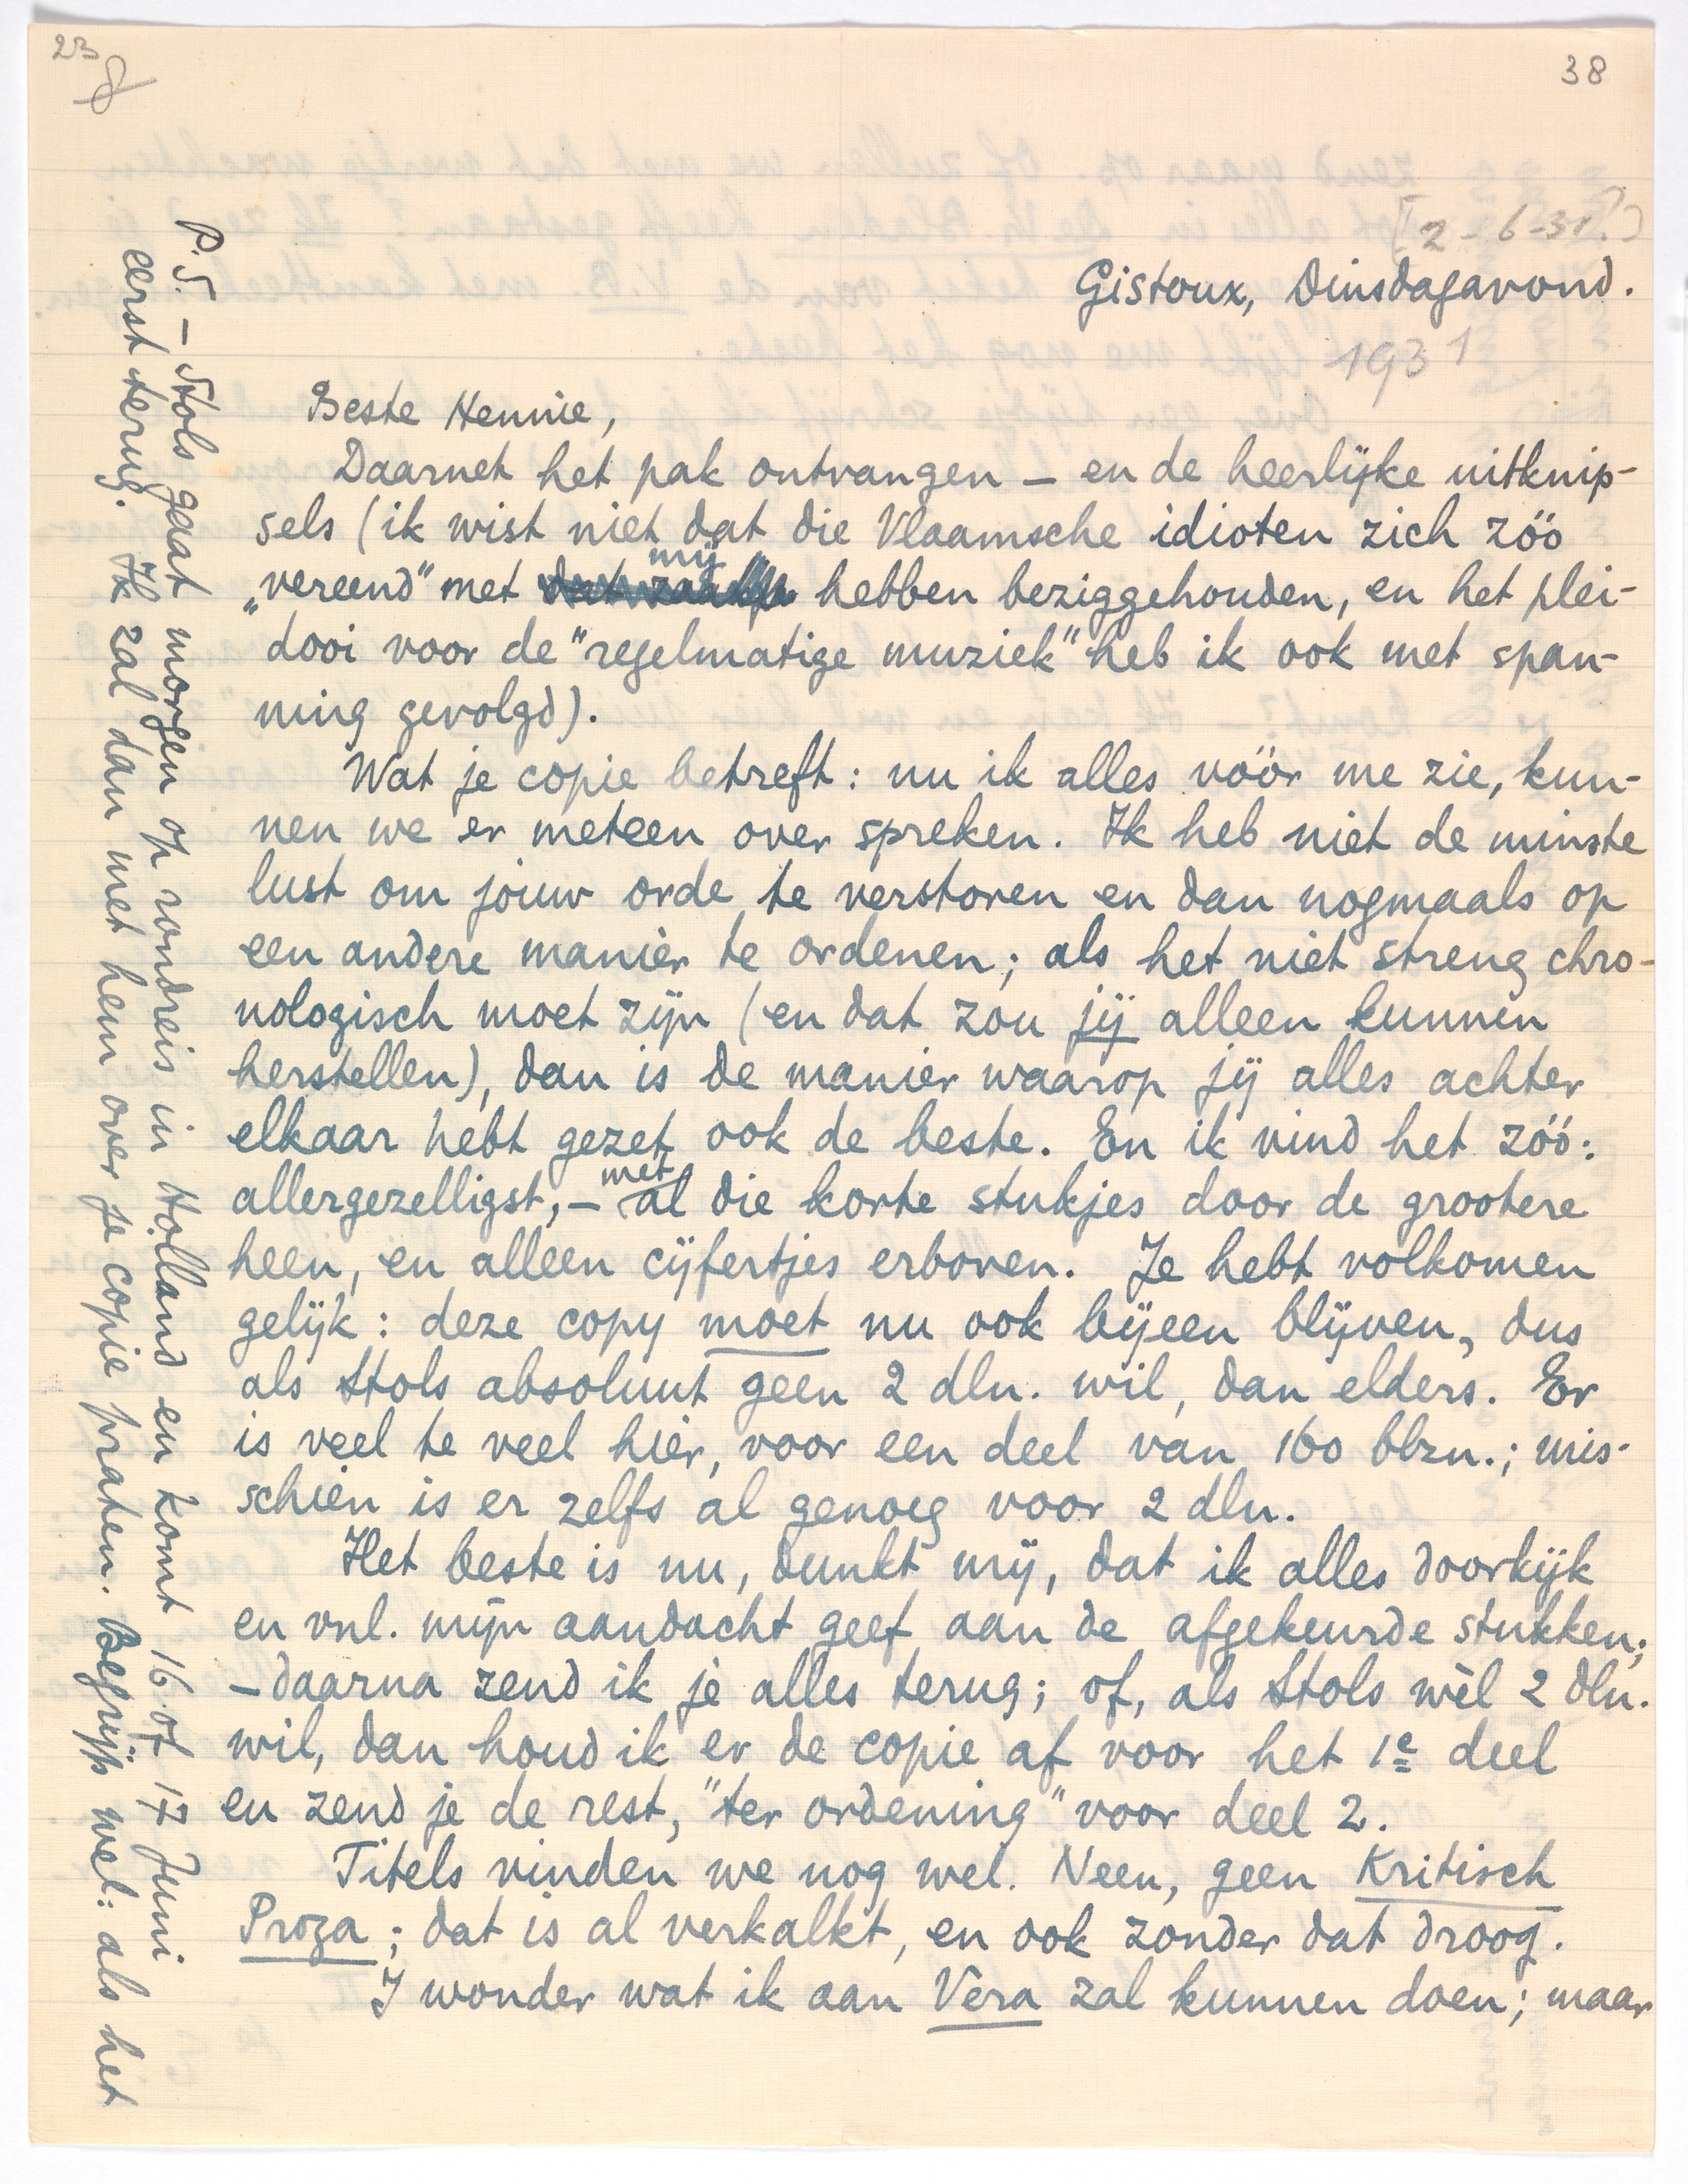 23
38
[2-6-31?]
Gistoux, Dinsdagavond.
1931
Beste Hennie,
Daarnet het pak ontvangen — en de heerlijke uitknip-
sels (ik wist niet dat die Vlaamsche idioten zich zóó
„vereend" met mij hebben beziggehouden, en het plei-
dooi voor de "regelmatige muziek" heb ik ook met span-
ning gevolgd).
Wat je copie betreft: nu ik alles vóór me zie, kun-
nen we er meteen over spreken. Ik heb niet de minste
lust om jouw orde te verstoren en dan nogmaals op
een andere manier te ordenen; als het niet streng chro-
nologisch moet zijn (en dat zou jij alleen kunnen
herstellen), dan is de manier waarop jij alles achter
elkaar hebt gezet ook de beste. En ik vind het zóó:
allergezelligst, — met al die korte stukjes door de grootere
heen, en alleen cijfertjes erboven. Je hebt volkomen
gelijk: deze copy moet nu ook bijeen blijven, dus
als Stols absoluut geen 2 dln. wil, dan elders. Er
is veel te veel hier, voor een deel van 160 blzn.; mis-
schien is er zelfs al genoeg voor 2 dln.
Het beste is nu, dunkt mij, dat ik alles doorkijk
en vnl. mijn aandacht geef aan de afgekeurde stukken;
— daarna zend ik je alles terug; of, als Stols wèl 2 dln.
wil, dan houd ik er de copie af voor het 1e deel
en zend je de rest, "ter ordening" voor deel 2.
Titels vinden we nog wel. Neen, geen Kritisch
Proza; dat is al verkalkt, en ook zonder dat droog.
I wonder wat ik aan Vera zal kunnen doen; maar
P.S. — Stols gaat morgen op rondreis in Holland en komt 16 of 17 Juni
eerst terug. Ik zal dan met hem over je copie praten. Begrijp wel: als het